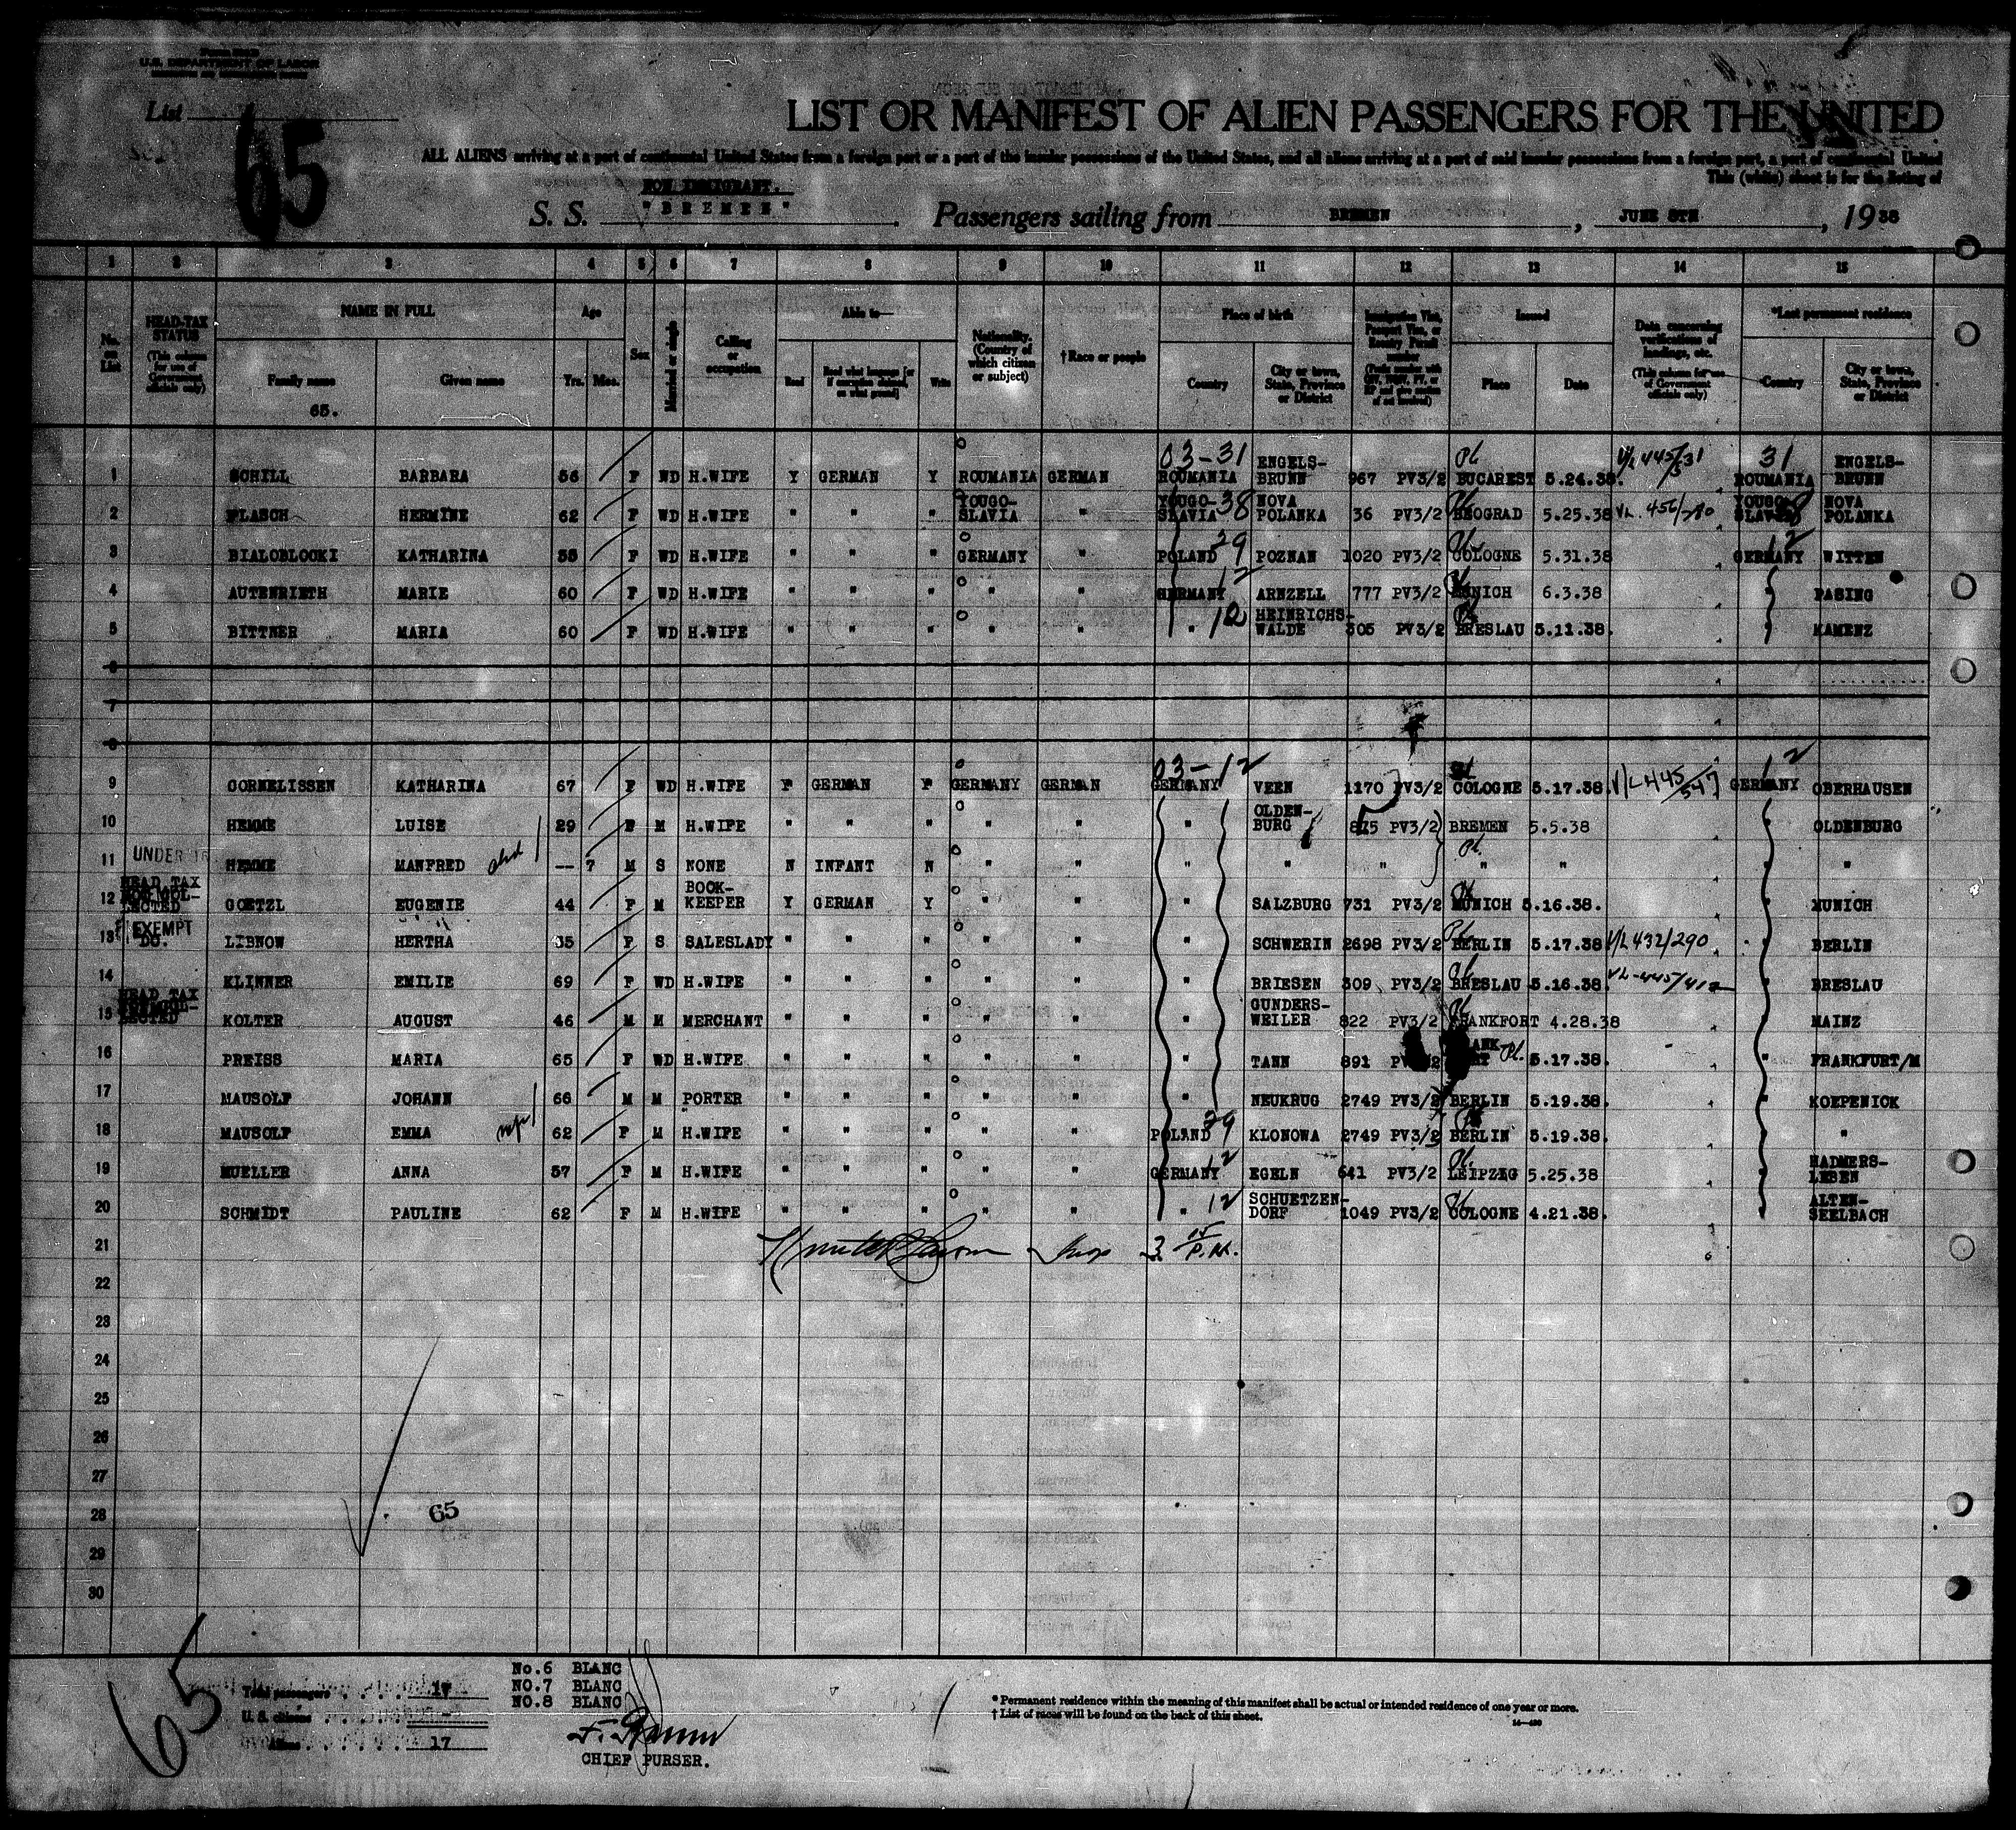 U.S. DEPARTMENT OF LABOR
List
65
LIST OR MANIFEST OF ALIEN PASSENGERS FOR THE UNITED
ALL ALIENS arriving at a port of continental United States from a foreign port or a port of the insular possessions of the United States, and all aliens arriving at a port of said insular possessions from a foreign port, a port of continental United
This (white) sheet is for the listing of
NON IMMIGRANT.
S. S. "BREMEN" Passengers sailing from BREMEN, JUNE 8TH, 1938
1 2 3 4 5 6 7 8 9 10 11 12 13 14 15
No. on List
HEAD-TAX STATUS (This column for use of Government officials only)
NAME IN FULL
Family name Given name
65.
Age
Yrs. Mos.
Sex
Married or single
Calling or occupation
Able to—
Read Read what language [or if exemption claimed, on what ground] Write
Nationality. (Country of which citizen or subject)
†Race or people
Place of birth
Country City or town, State, Province or District
Immigration Visa, Passport Visa, or Reentry Permit number
Issued
Place Date
Data concerning verifications of landings, etc. (This column for use of Government officials only)
*Last permanent residence
Country City or town, State, Province or District
03-31 V/L 445/31 31
1 SCHILL BARBARA 56 F WD H.WIFE Y GERMAN Y ROUMANIA GERMAN ROUMANIA ENGELS-BRUNN 967 PV3/2 BUCAREST 5.24.38. ROUMANIA ENGELS-BRUNN
2 FLASCH HERMINE 62 F WD H.WIFE " " " YOUGO-SLAVIA " YOUGO-SLAVIA 38 NOVA POLANKA 36 PV3/2 BEOGRAD 5.25.38 YOUGO-SLAVIA NOVA POLANKA
3 BIALOBLOCKI KATHARINA 55 F WD H.WIFE " " " GERMANY " POLAND 29 POZNAN 1020 PV3/2 COLOGNE 5.31.38 GERMANY 12 WITTEN
4 AUTENRIETH MARIE 60 F WD H.WIFE " " " " " GERMANY 12 ARNZELL 777 PV3/2 MUNICH 6.3.38 PASING
5 BITTNER MARIA 60 F WD H.WIFE " " " " " " 12 HEINRICHS-WALDE 305 PV3/2 BRESLAU 5.11.38. KAMENZ
6
7
8
03-12 12
9 CORNELISSEN KATHARINA 67 F WD H.WIFE Y GERMAN Y GERMANY GERMAN GERMANY VEEN 1170 PV3/2 COLOGNE 5.17.38. V/L 445/547 GERMANY OBERHAUSEN
10 HEMME LUISE 29 F M H.WIFE " " " " " " OLDEN-BURG 875 PV3/2 BREMEN 5.5.38 " OLDENBURG
11 UNDER 16 HEMME MANFRED chd -- 7 M S NONE N INFANT N " " " " " " " " "
12 HEAD TAX COLLECTED GOETZL EUGENIE 44 F M BOOK-KEEPER Y GERMAN Y " " " SALZBURG 731 PV3/2 MUNICH 5.16.38. " MUNICH
13 EXEMPT DO. LIBNOW HERTHA 35 F S SALESLADY " " " " " " SCHWERIN 2698 PV3/2 BERLIN 5.17.38 V/L 432/290 " BERLIN
14 KLINNER EMILIE 69 F WD H.WIFE " " " " " " BRIESEN 309 PV3/2 BRESLAU 5.16.38. " BRESLAU
15 HEAD TAX COLLECTED KOLTER AUGUST 46 M M MERCHANT " " " " " " GUNDERS-WEILER 822 PV3/2 FRANKFORT 4.28.38 " MAINZ
16 PREISS MARIA 65 F WD H.WIFE " " " " " " TANN 891 5.17.38. " FRANKFURT/M
17 MAUSOLF JOHANN 66 M M PORTER " " " " " " NEUKRUG 2749 PV3/2 BERLIN 5.19.38. " KOEPENICK
18 MAUSOLF EMMA 62 F M H.WIFE " " " " " POLAND 29 KLONOWA 2749 PV3/2 BERLIN 5.19.38. "
19 MUELLER ANNA 57 F M H.WIFE " " " " " GERMANY 12 EGELN 641 PV3/2 LEIPZIG 5.25.38 " HADMERS-LEBEN
20 SCHMIDT PAULINE 62 F M H.WIFE " " " " " " 12 SCHUETZEN-DORF 1049 PV3/2 COLOGNE 4.21.38. ALTEN-SEELBACH
21 Insp 3 15 P.M.
22
23
24
25
26
27
28 65
29
30
65
Total passengers . . . . 17
U. S. citizens . . . . . -
Aliens . . . . . . . 17
No.6 BLANC
NO.7 BLANC
NO.8 BLANC
CHIEF PURSER.
* Permanent residence within the meaning of this manifest shall be actual or intended residence of one year or more.
† List of races will be found on the back of this sheet.